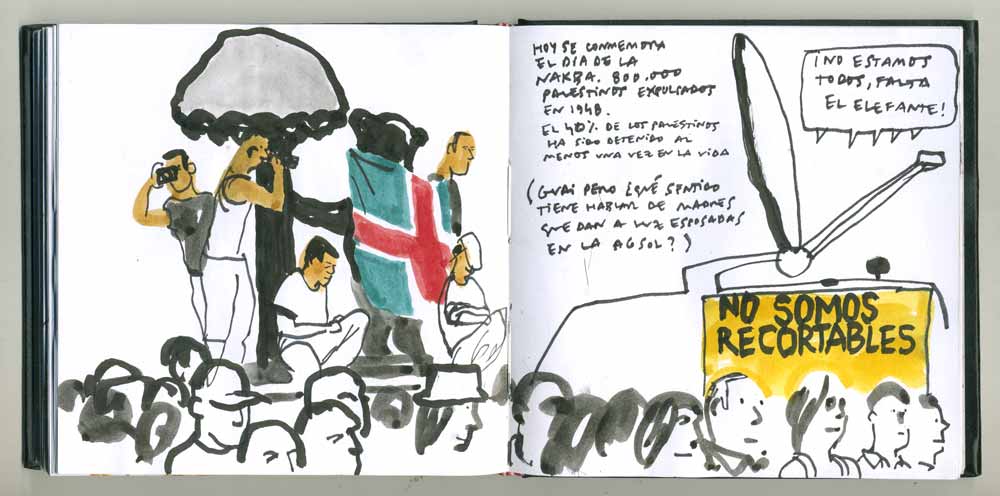 HOY SE CONMEMORA
EL DÍA DE LA
NAKBA. 800.000
PALESTINOS EXPULSADOS
EN 1948.
EL 40% DE LOS PALESTINOS
HA SIDO DETENIDO AL
MENOS UNA VEZ EN LA VIDA
(GUAI PERO ¿QUÉ SENTIDO
TIENE HABLAR DE MADRES
QUE DAN A LUZ ESPOSADAS
EN LA AGSOL?)
¡NO ESTAMOS
TODOS, FALTA
EL ELEFANTE!
NO SOMOS
RECORTABLES